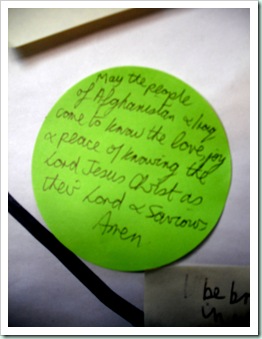 May the people
of Afghanistan & Iraq
come to know the love, joy
& peace of knowing the
Lord Jesus Christ as
their Lord & Saviour
Amen
I be br
in